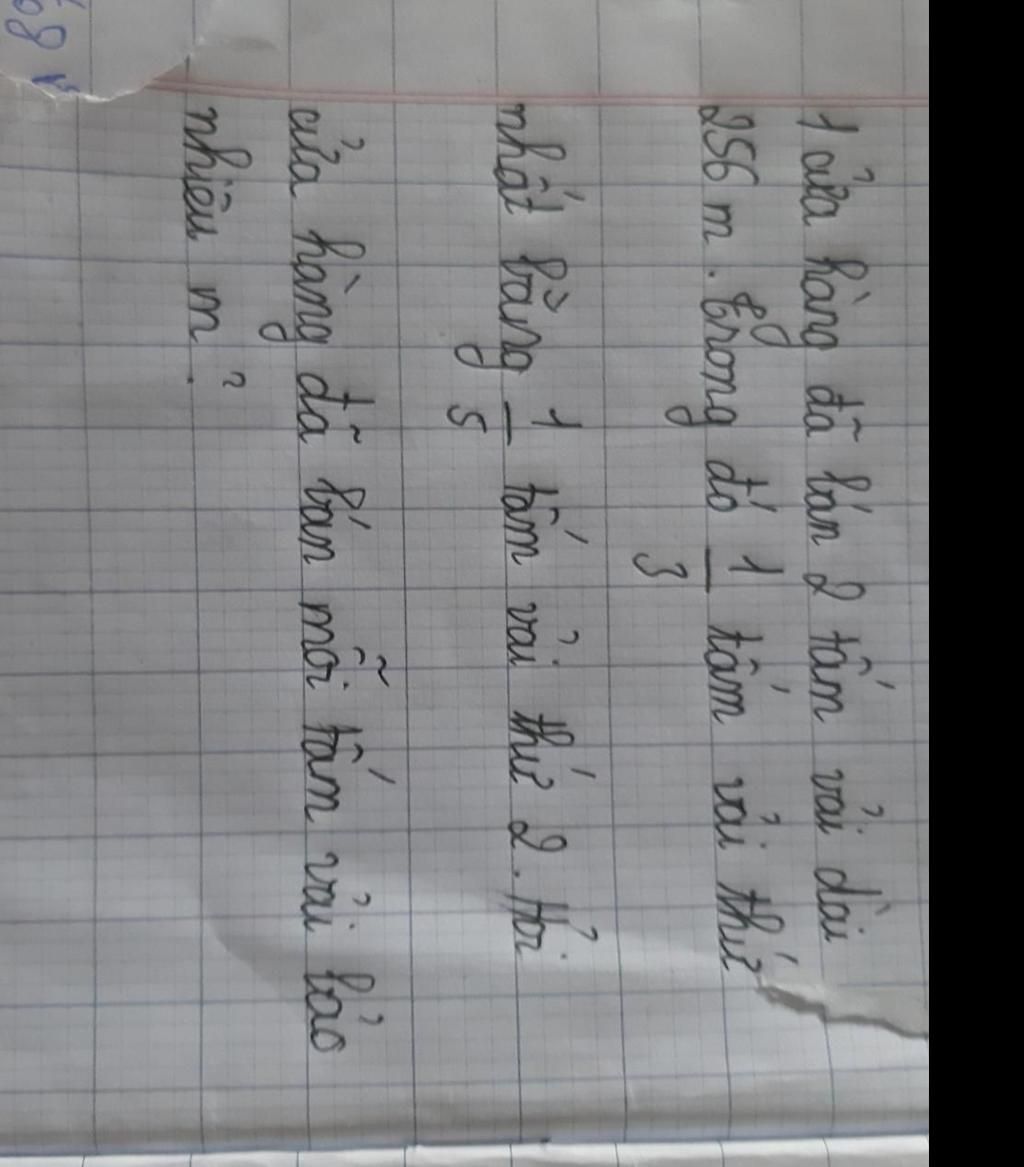 1 cửa hàng đã bán 2 tấm vải dài
256 m. Trong đó 1/3 tấm vải thứ
nhất bằng 1/5 tấm vải thứ 2. Hỏi
cửa hàng đã bán mỗi tấm vải bảo
nhiêu m?